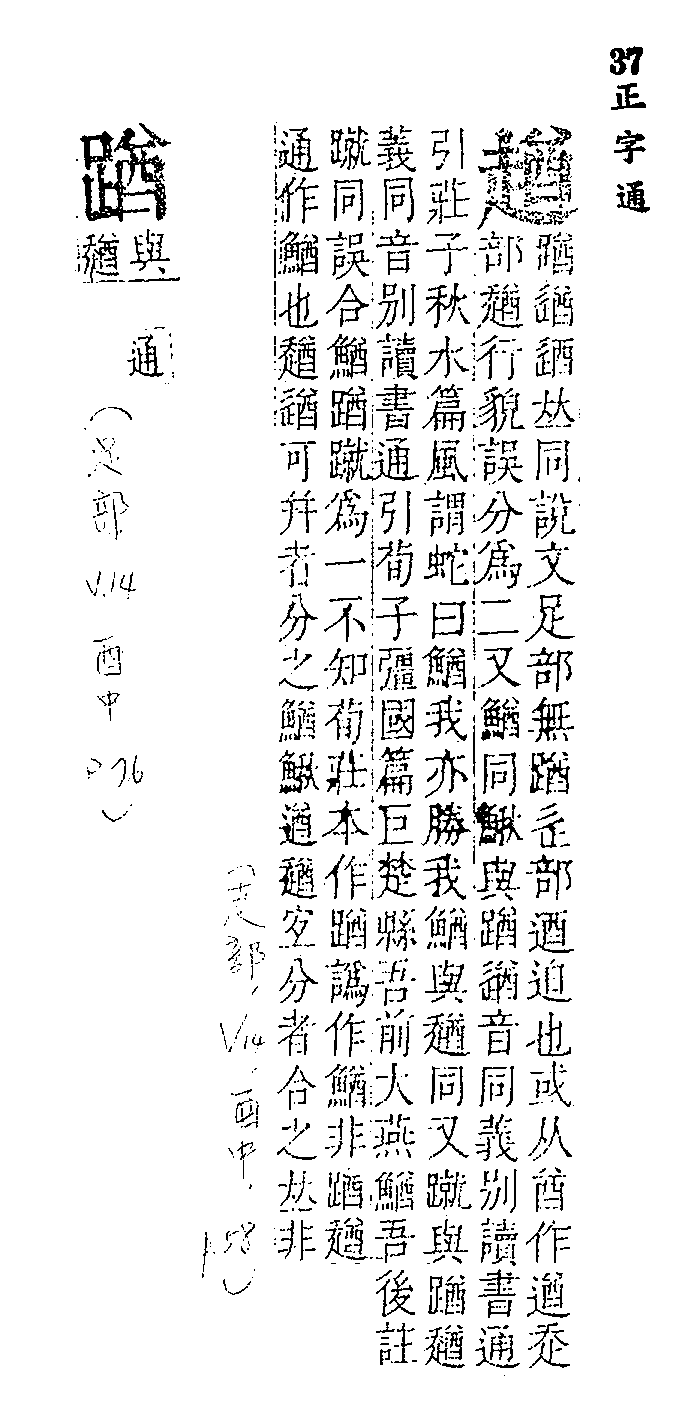 37正字通
趥䠓遒逎𠀤同說文足部無䠓辵部逎迫也或从酋作遒走
部趥行貌誤分爲二又鰌同鰍與䠓遒音同義別讀書通
引莊子秋水篇風謂蛇曰鰌我亦勝我鰌與趥同又蹴與䠓趥
義同音別讀書通引荀子彊國篇巨楚縣吾前大燕鰌吾後註
蹴同誤合鰌䠓蹴爲一不知荀莊本作䠓譌作鰌非䠓趥
通作鰌也趥遒可幷者分之鰌鰍遒趥宜分者合之𠀤非
(走部, V14, 酉中, P58)
䠓與趥通
(足部 V.14 酉中 P76)